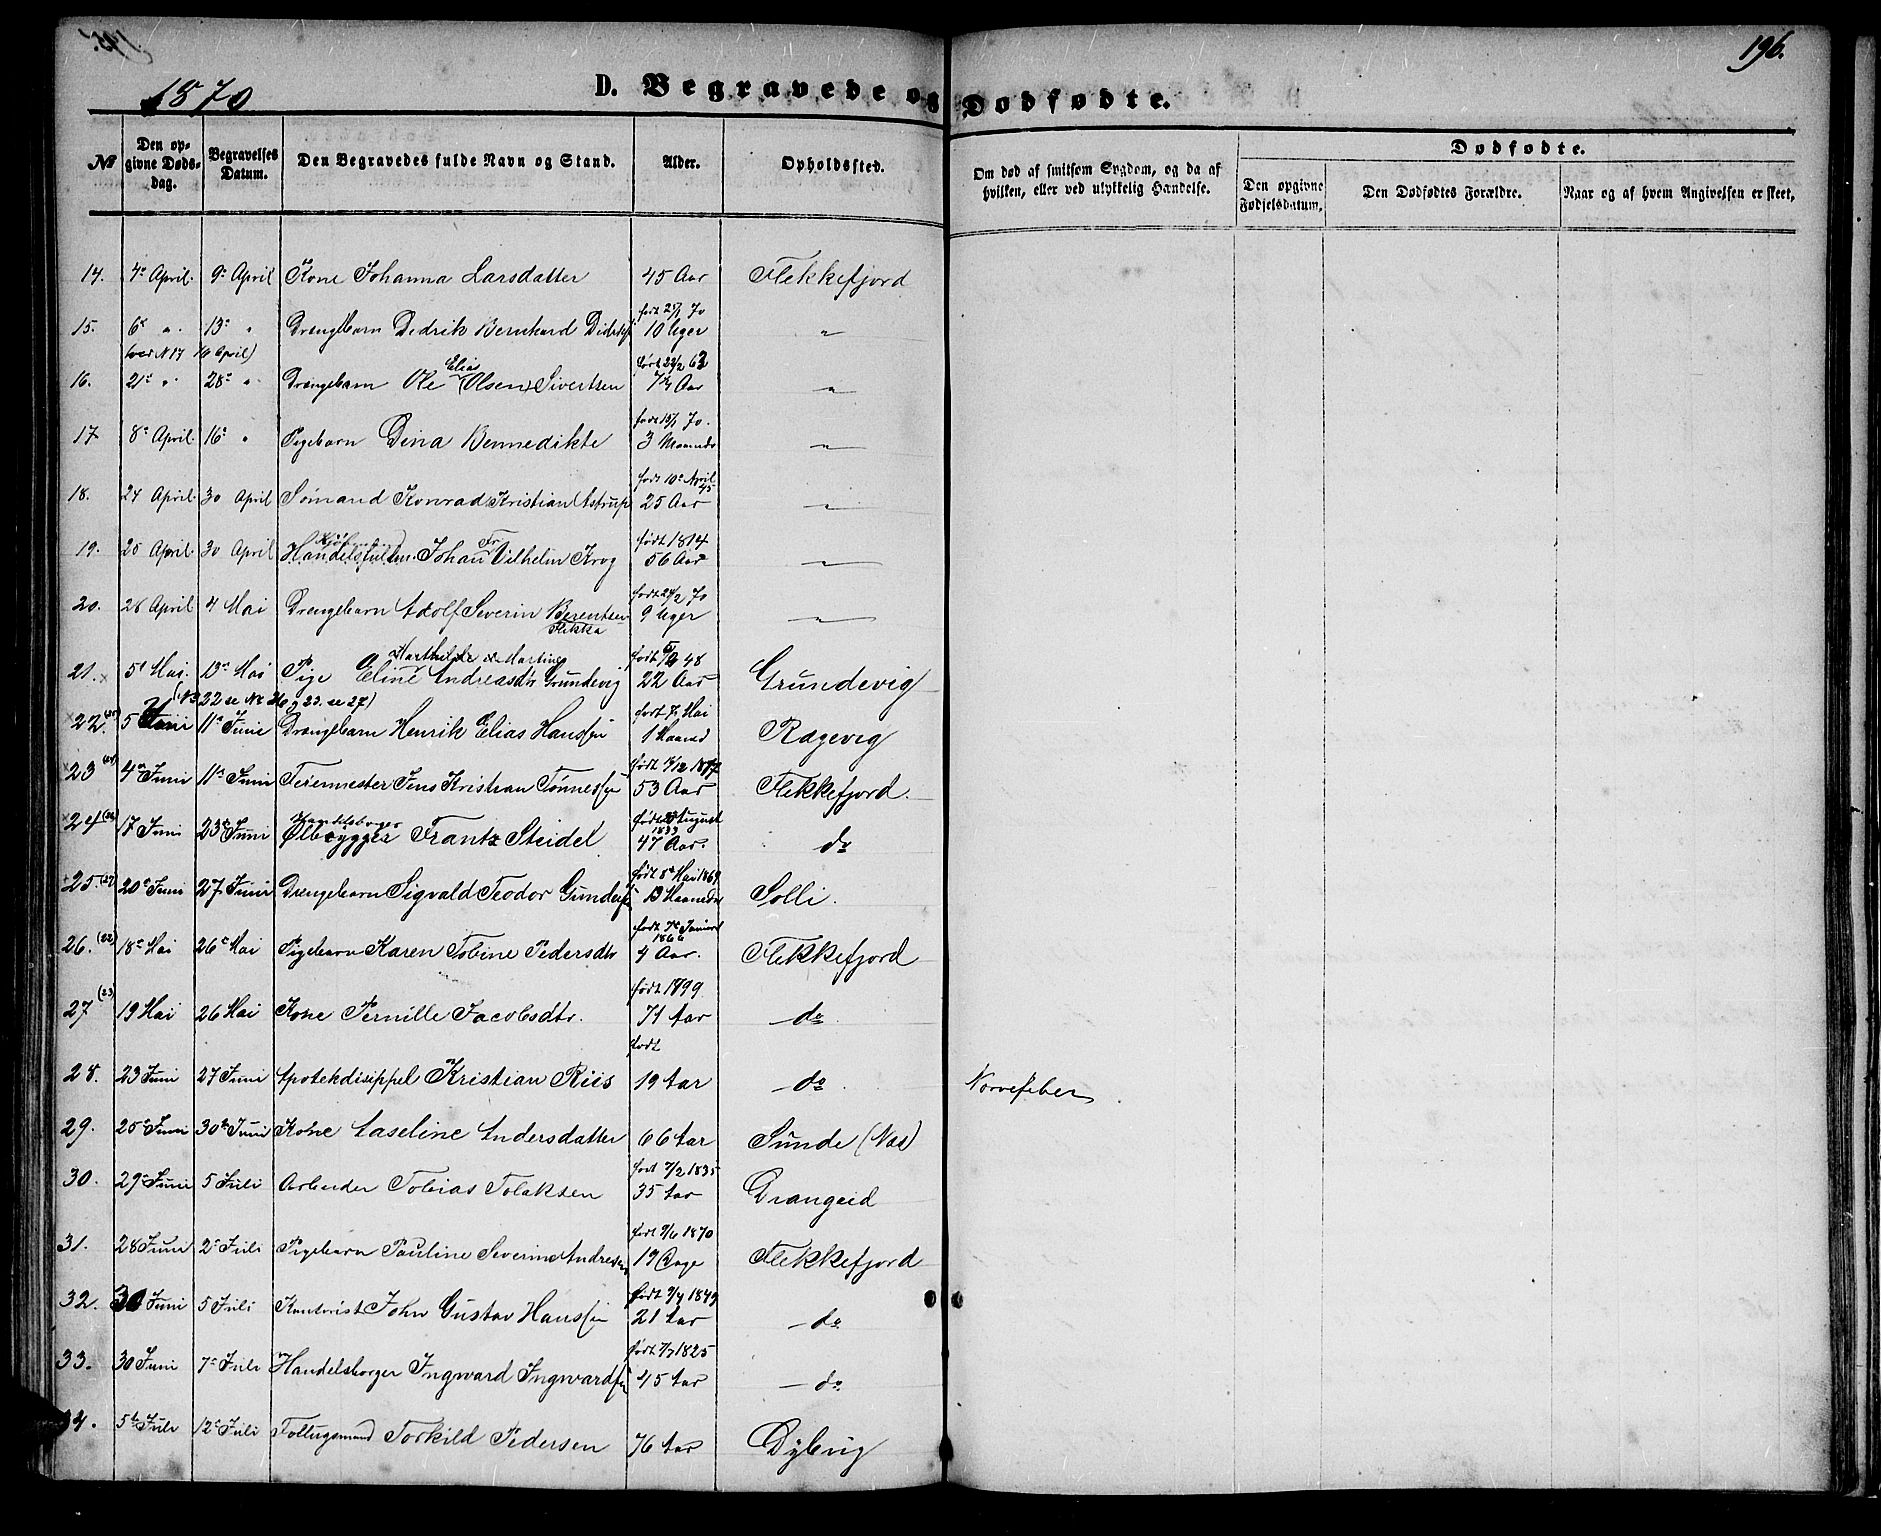 196.
1870
D. Begravede og Dødfødte.
No
Den opgivne Dødsdag.
Begravelses Datum.
Den Begravedes fulde Navn og Stand.
Alder.
Opholdssted.
Om død af smitsom Sygdom, og da af hvilken, eller ved ulykkelig Hændelse.
Dødfødte.
Den opgivne Fødselsdatum.
Den Dødfødtes Forældre.
Naar og af hvem Angivelsen er skeet.
14. 4de April. 9de April Kone Johanna Larsdatter 45 Aar Flekkefjord
født 25/1 70
15. 6te " 13de " Drengebarn Didrik Bernhard Didriksen 10 Uger "
født 22/2 63
Elias
16. 21de " 28de " Drengebarn Ole (Olsen) Sivertsen 7 Aar "
født 15/1 70.
17 8de April. 16de " Pigebarn Dina Bennedikte 3 Maaneder "
født 10de April 45
18. 24 April 30 April Sømand Konrad Kristian Astrup 25 Aar "
født 1814
19. 25 April 30 April Johan Fr Vilhelm Krog 56 Aar "
født 24/2 70
20. 26 April 4 Mai Drengebarn Adolf Severin Berentsen Flikka 9 Uger "
48
21. 5te Mai. 13de Mai Pige Eline Andreasdtr Grundevig 22 Aar Grundevig
(No 22 se No 26 og 23. se 27)
født 7de Mai
22. 5 Juni 11te Juni Drengebarn Henrik Elias Hanssen 1 Maaned Ragevig
23 4de Juni 11te Juni Jens Kristian Tønnessen 53 Aar Flekkefjord.
Handelsborger
født August
24 17 Juni 23de Juni Ølbrygger Frantz Steidel 47 Aar. do
født 8de Mai 1869
25. (27) 20de Juni 27 Juni Drengebarn Sigvald Teodor Gundersen 13 Maaneder Solli.
født 7de Januar 1866
26. (22) 18de Mai 26de Mai Pigebarn Karen Tobine Pedersdtr 4 Aar. Flekkefjord
født 1799.
27 (23) 19 Mai 26 Mai Kone Pernille Jacobsdtr. 71 Aar do
født
28. 23 Juni 27 Juni Apotekdisippel Kristian Riis 19 Aar do Nervefeber
29. 25de Juni 30te Juni Kone Aaseline Andersdatter 66 Aar Sunde (Næs)
født 7/2 1835
30. 29de Juni 5 Juli Arbeider Tobias Tolaksen 35 Aar Drangeid
født 9/6 1870
31. 28 Juni 2de Juli Pigebarn Pauline Severine Andresen 19 Dage Flekkefjord
født 9/4 1849
32. 30 Juni 5 Juli Kontorist John Gustav Hanssen 21 Aar do
født 7/7 1825
33. 30 Juni 7de Juli Handelsborger Ingward Ingwardsen 45 Aar do
34. 5te Juli 12te Juli Følugsmand Torkild Pedersen 76 Aar Dybvig